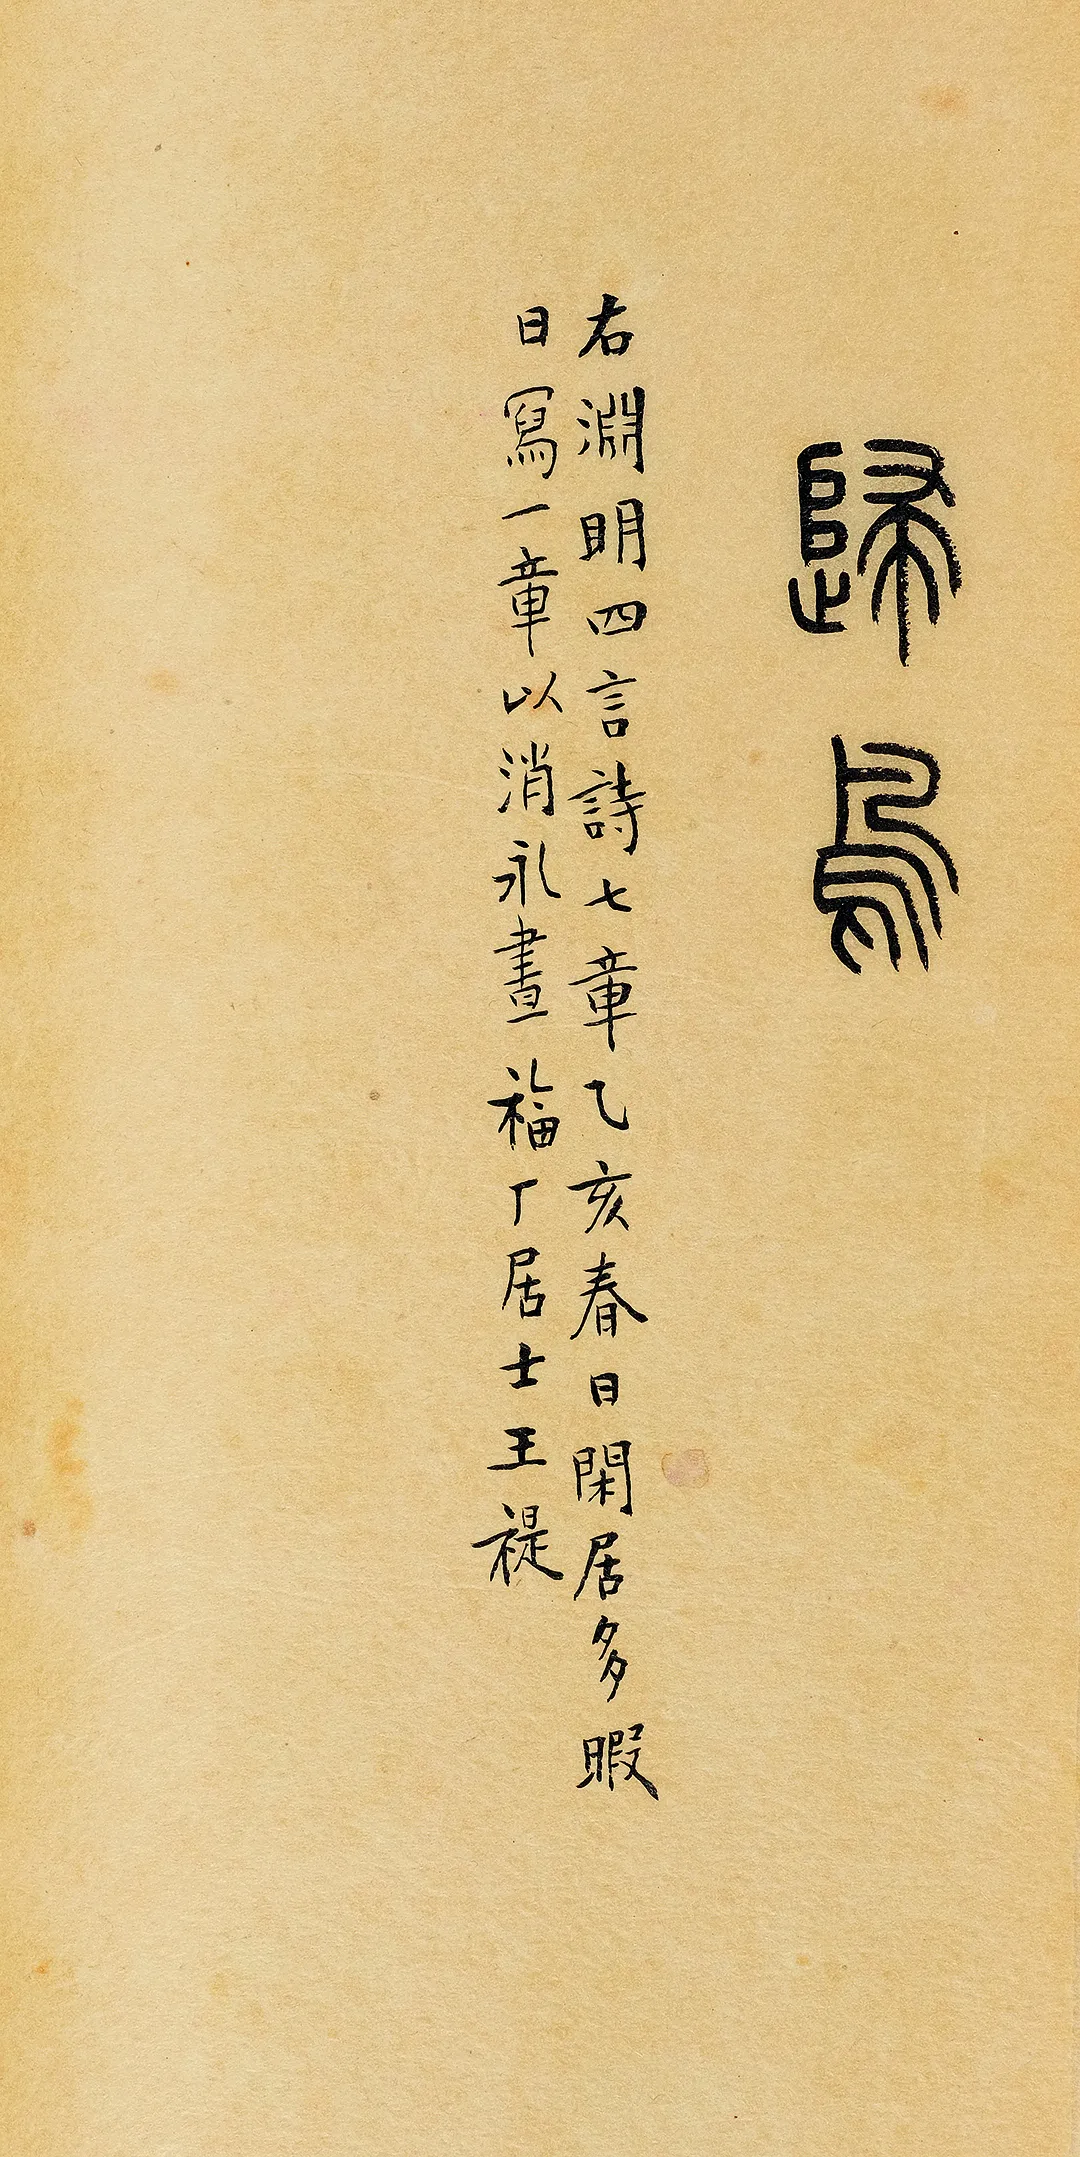 歸鳥
右淵明四言詩七章乙亥春日閑居多暇
日寫一章以消永晝福厂居士王禔